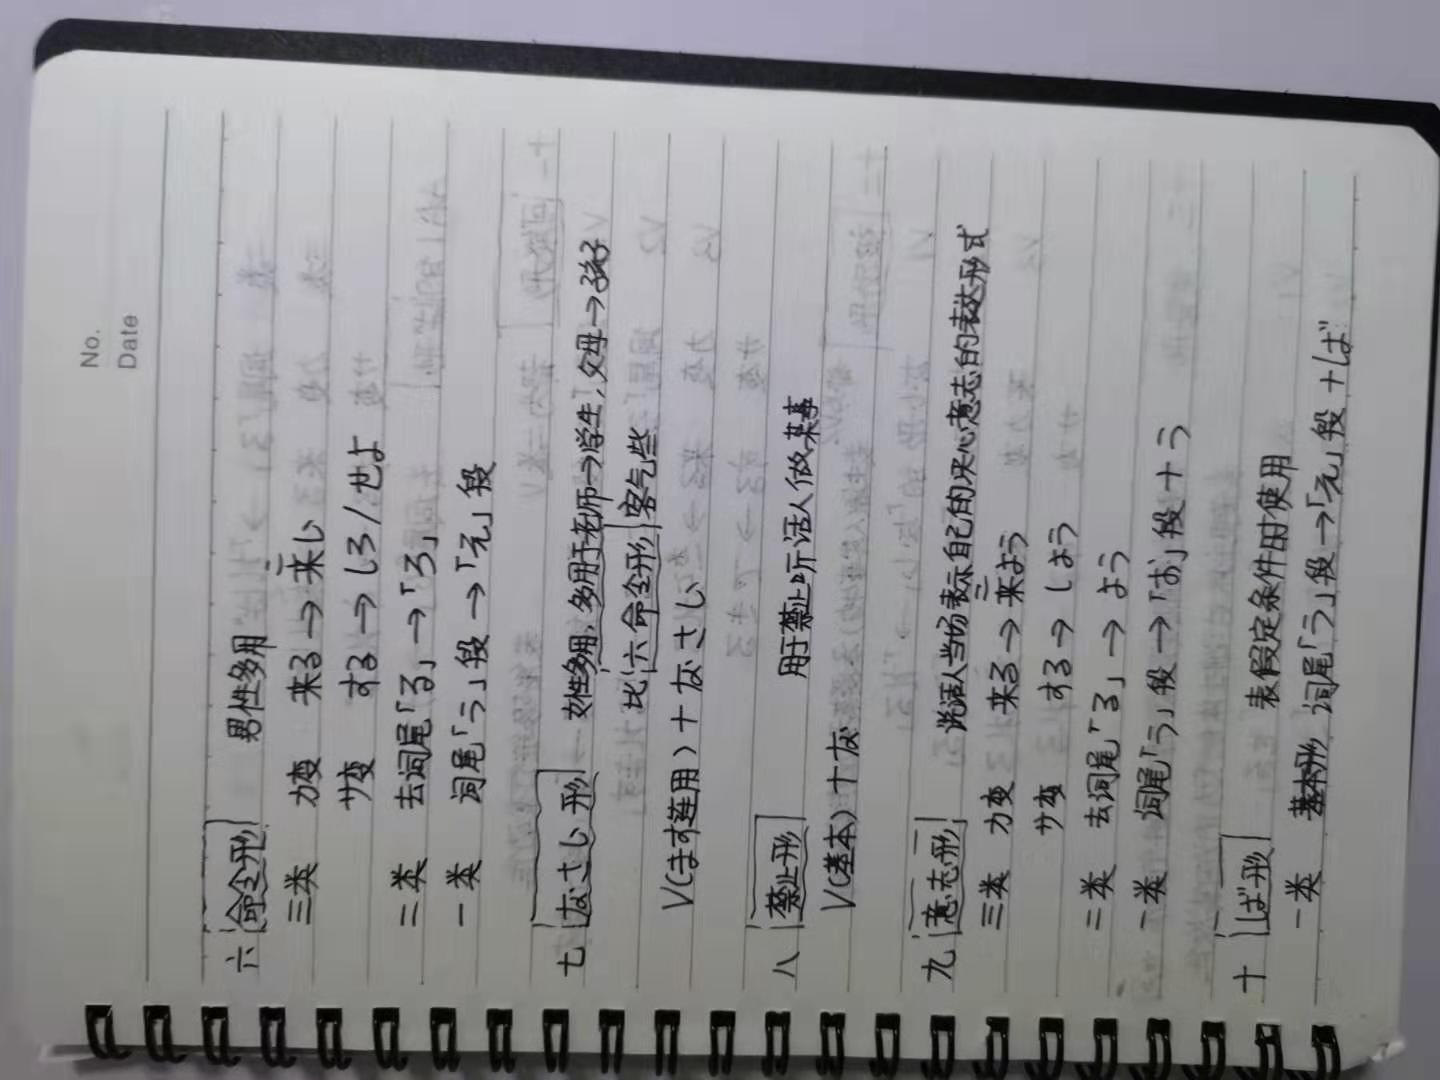 No.
Date
六 命令形 男性多用
三类 カ変 来る→来い
サ変 する→しろ/せよ
二类 去词尾「る」→「ろ」
一类 词尾「う」段→「え」段
七 なさい形 女性多用,多用于老师→学生,父母→孩子
比六命令形客气些
V(ます连用)+なさい
八 禁止形 用于禁止听话人做某事
V(基本)+な
九 意志形 说话人当场表示自己的决心意志的表达形式
三类 カ变 来る→来よう
サ変 する→しよう
二类 去词尾「る」→よう
一类 词尾「う」段→「お」段+う
十 ば形 表假定条件时使用
一类 词尾「う」段→「え」段+ば